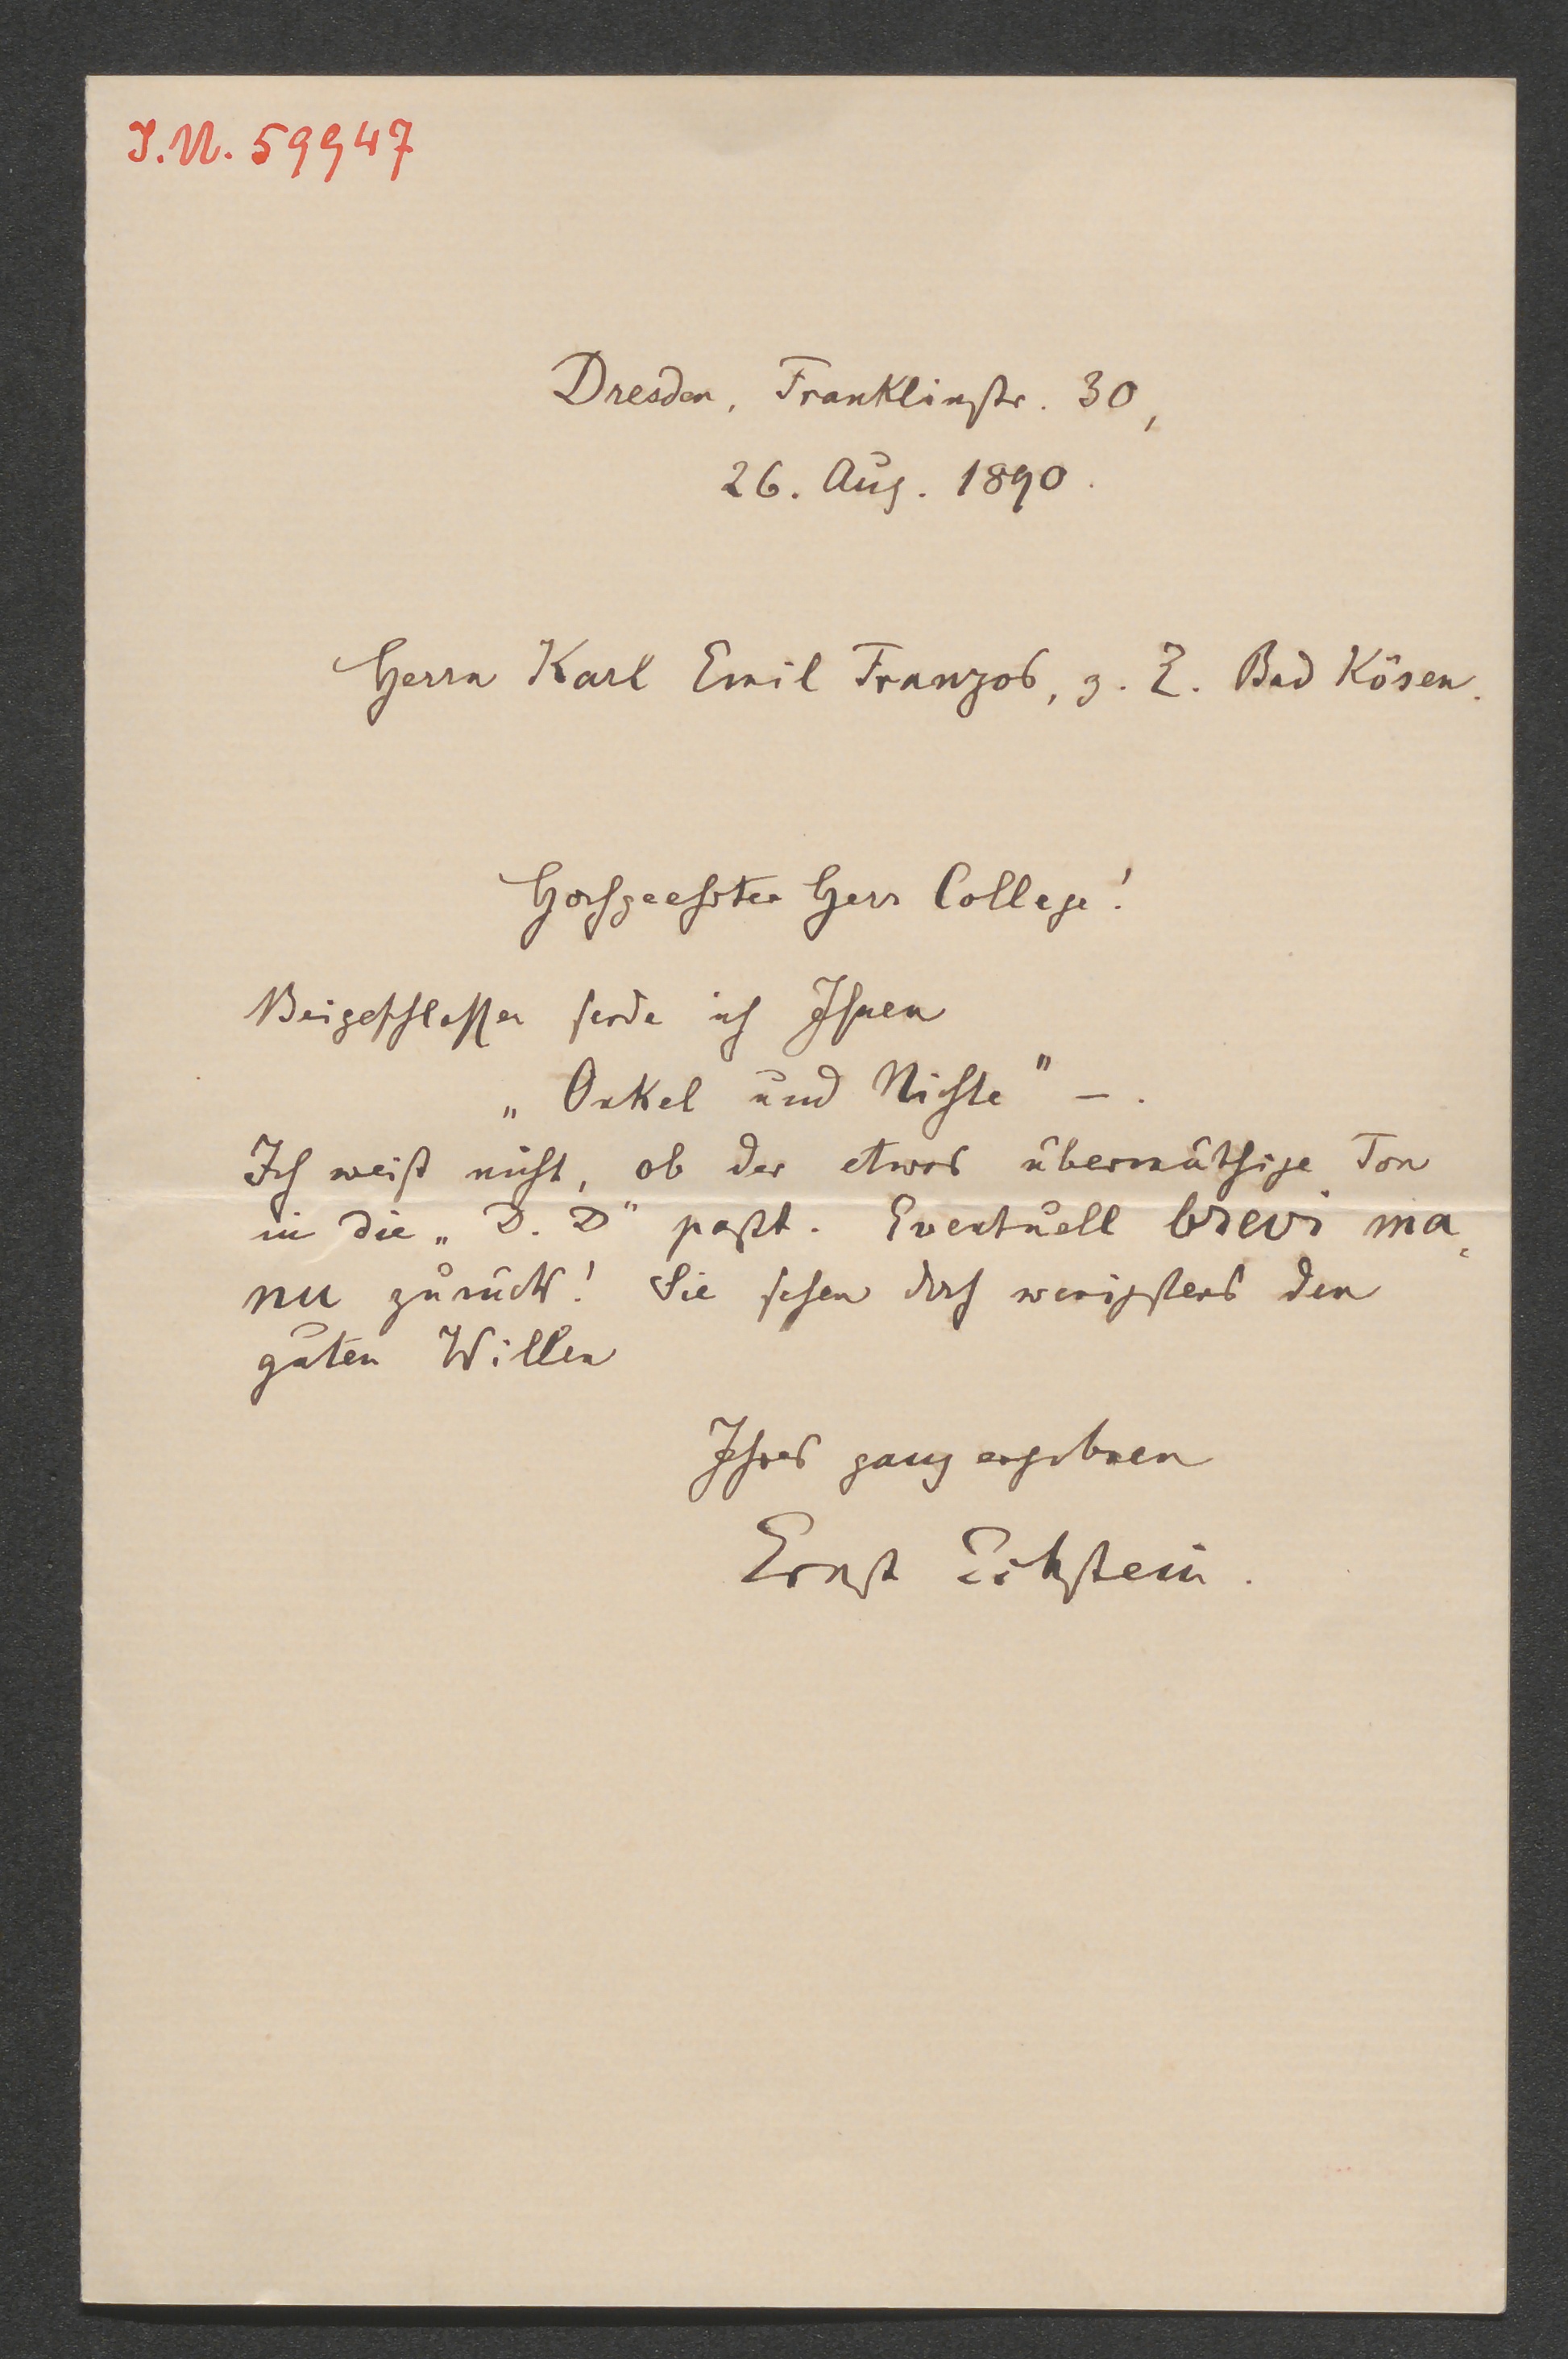 I.N. 59947
Dresden, Franklinstr. 30,
26. Aug. 1890.
Herrn Karl Emil Franzos, z. Z. Bad Kösen.
Hochgeehrter Herr College!
Beigeschlossen sende ich Ihnen
„Onkel und Nichte" –.
Ich weiß nicht, ob der etwas übermüthige Ton
in die „D. D" paßt. Eventuell brevi ma-
nu zurück! Sie sehen doch wenigstens den
guten Willen
Ihres ganz ergebnen
Ernst Eckstein.